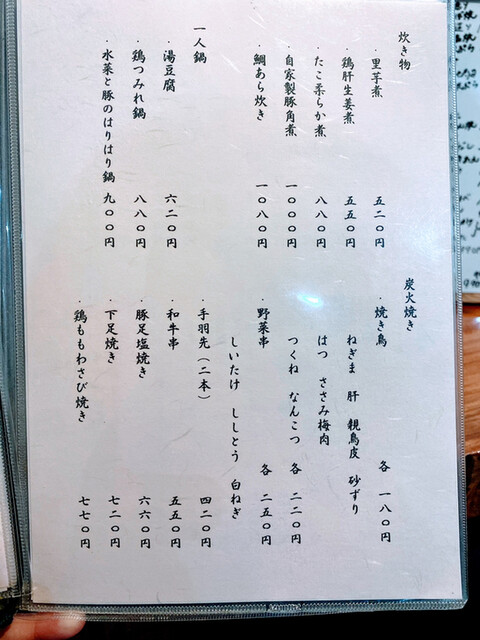 炊き物
・里芋煮 五二〇円
・鶏肝生姜煮 五五〇円
・たこ柔らか煮 八八〇円
・自家製豚角煮 一〇〇〇円
・鯛あら炊き 一〇八〇円
一人鍋
・湯豆腐 六二〇円
・鶏つみれ鍋 八八〇円
・水菜と豚のはりはり鍋 九〇〇円
炭火焼き
・焼き鳥 各 一八〇円
ねぎま 肝 親鳥皮 砂ずり
はつ ささみ梅肉
つくね なんこつ 各 二二〇円
・野菜串 各 二五〇円
しいたけ ししとう 白ねぎ
・手羽先(二本) 四二〇円
・和牛串 五五〇円
・豚足塩焼き 六六〇円
・下足焼き 七二〇円
・鶏ももわさび焼き 七七〇円